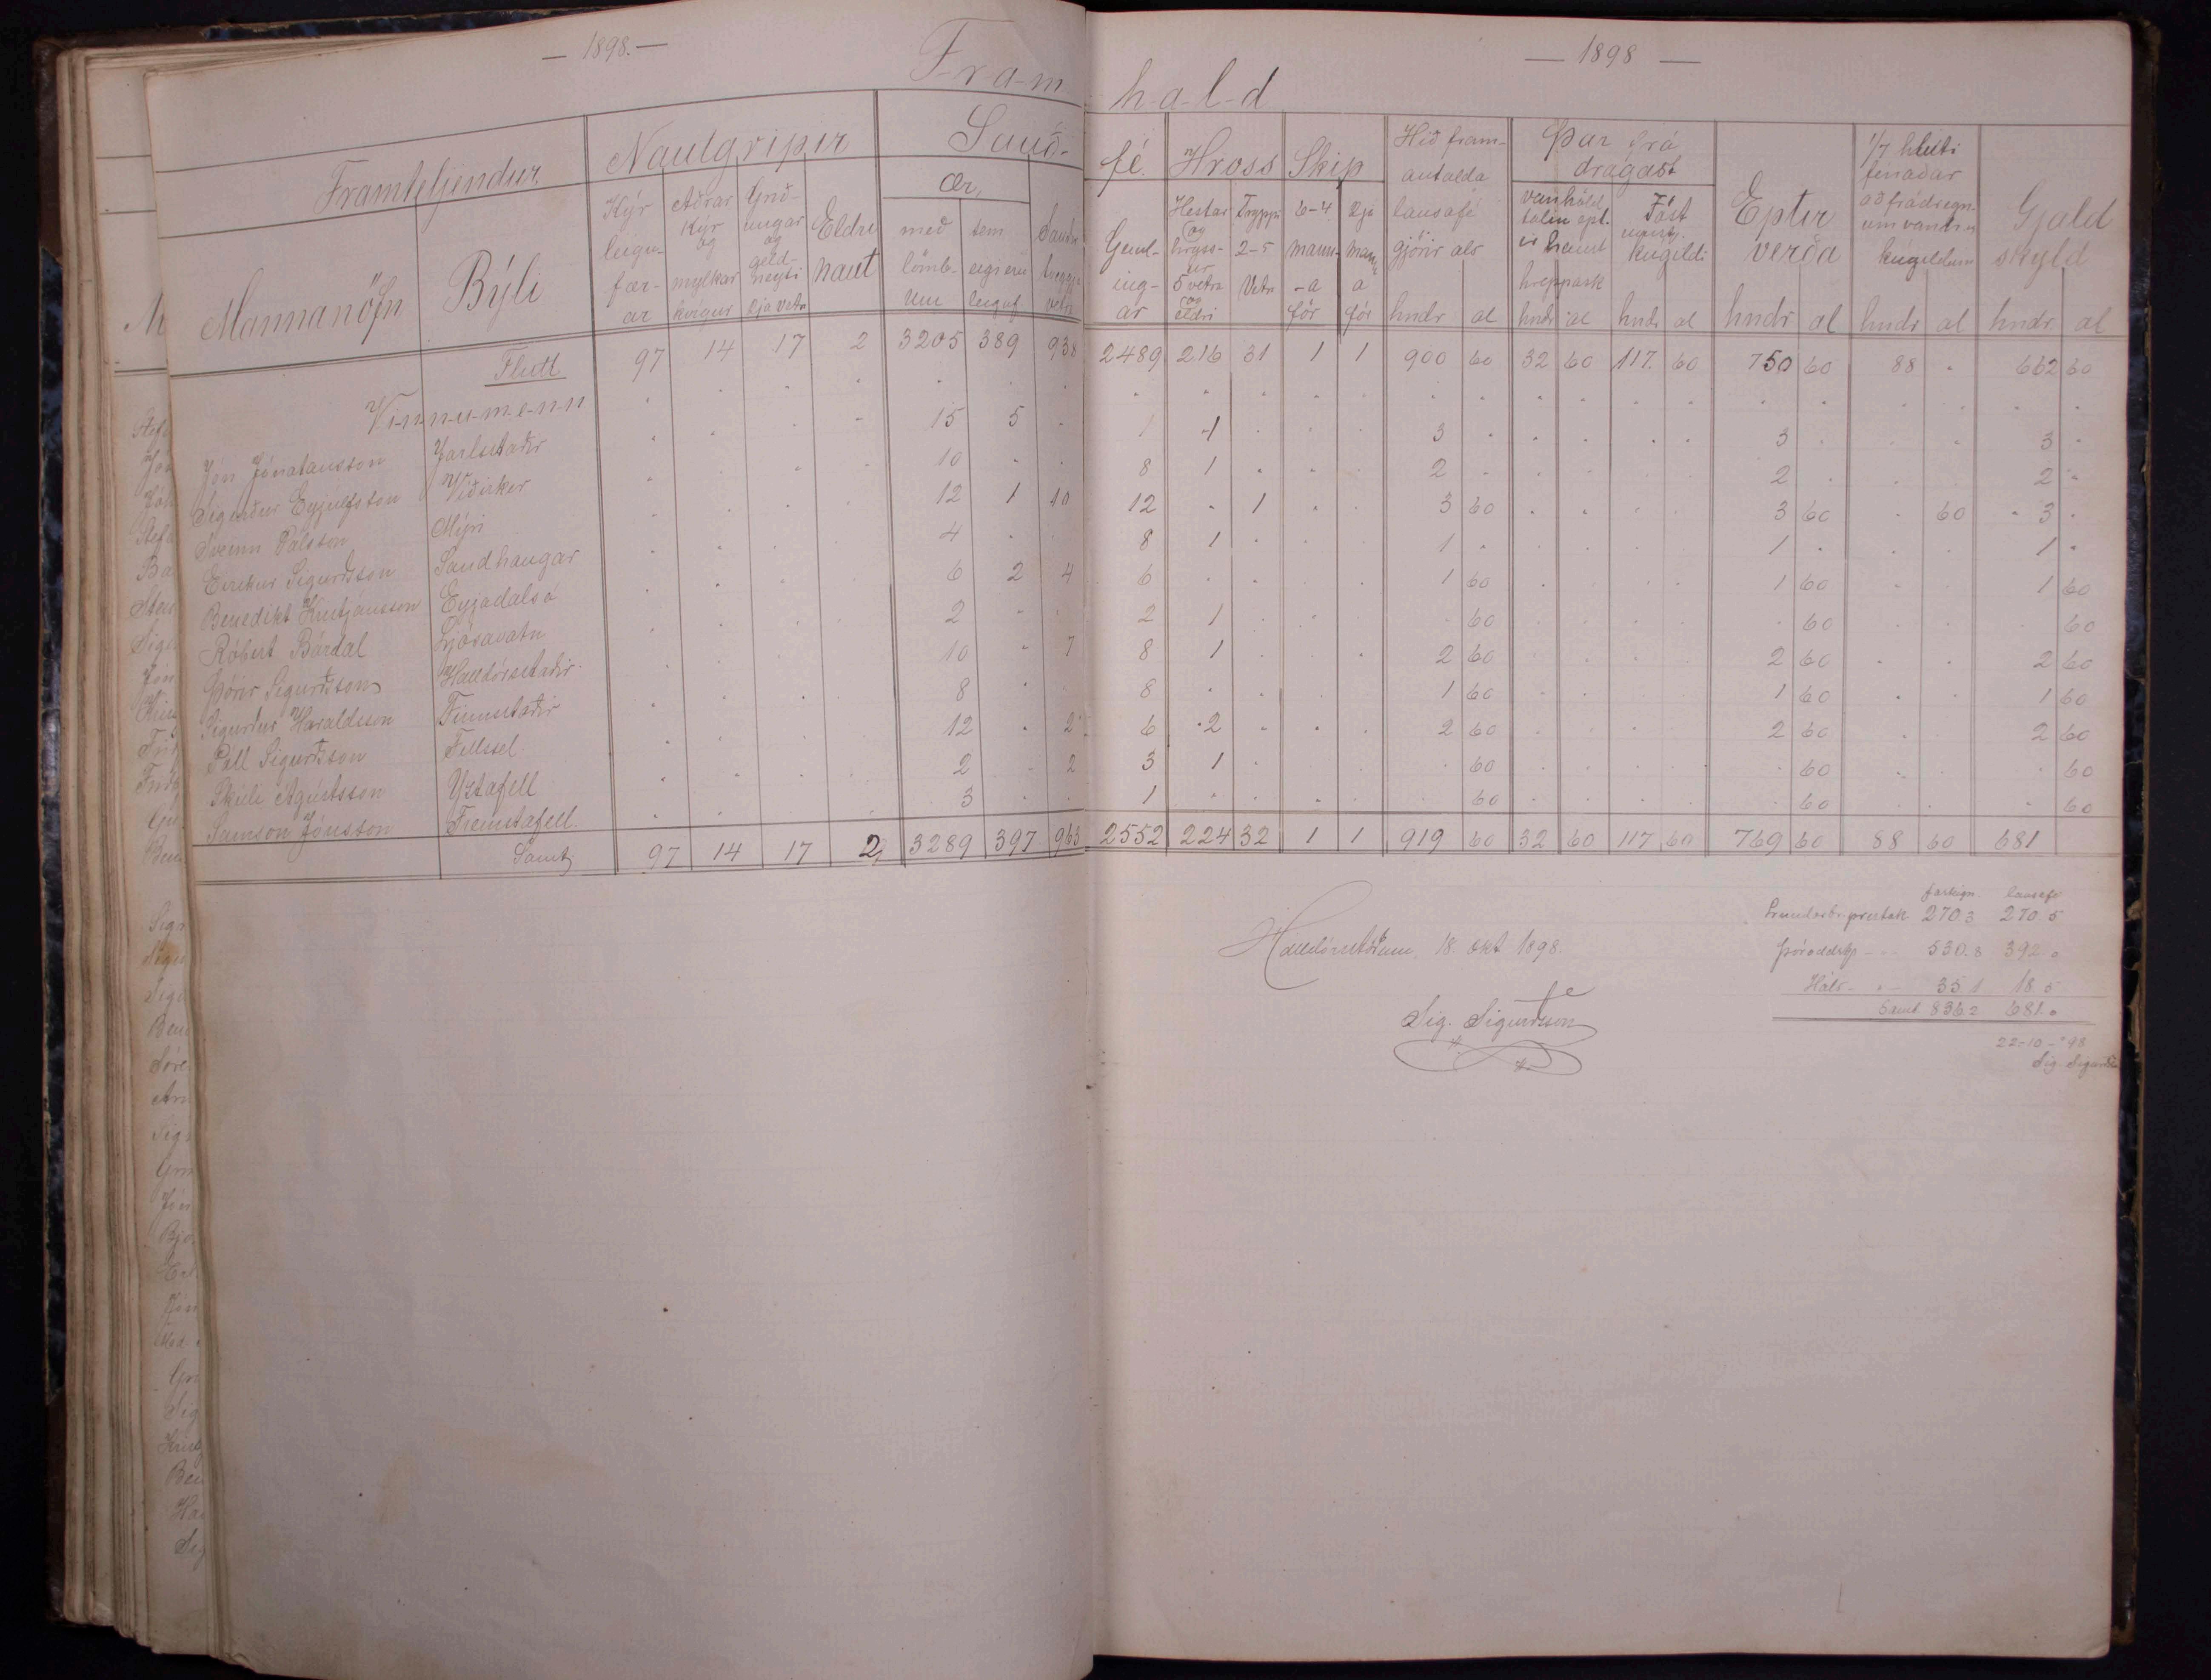 — 1898. —
— 1898 —
F-r-a-m
h-a-l-d
Framteljendur.
Nautgripir
Sauð-
fé.
Hross
Skip
Hið fram-
antalda
lausafé
gjörir als
Þar frá
dragast
Eptir
verða
1/7 hluti
fénaðar
að frádregn-
um
kúgildum
Gjald
skyld
Mannanöfn
Býli
Kýr
leigu-
fær-
ar
Aðrar
Kýr
og
mylkar
kvígur
Grið-
ungar
og
geld-
neyti
Eldri
naut
Ær,
með
lömb-
um
sem
eigi eru
Geml-
ing-
ar
Hestar
og
hryss-
ur
5 vetra
og
eldri
Tryppi
2-5
Vetra
6-4
mann-
-a
för
2ja
mann
a
för
hndr al
hndr al hndr al
hndr al hndr al hndr. al
Flutt 97 14 17 2 3205 389 938 2489 216 31 1 1 900 60 32 60 117. 60 750 60 88 . 662 60
V-i-n-n-u-m-e-n-n
Jón Jónatansson Jarlsstaðir 15 5 . 1 1 . . . 3 . 3 . 3 .
Sigurður Eyjúlfsson Víðirker 10 . . 8 1 . . . 2 . 2 . 2 .
Sveinn Pálsson Mýri 12 1 10 12 . 1 . . 3 60 3 60 . 60 3 .
Eiríkur Sigurðsson Sandhaugar 4 . . 8 1 . . . 1 . 1 . 1 .
Benedikt Kristjánsson Eyjadalsá 6 2 4 6 . . . . 1 60 1 60 1 60
Róbert Bárdal Ljósavatn 2 . . 2 1 . . . . 60 . 60 . 60
Þórir Sigurðsson Halldórsstaðir 10 . 7 8 1 . . . 2 60 2 60 2 60
Sigurður Haraldsson Finnstaðir 8 . . 8 . . . . 1 60 1 60 1 60
Páll Sigurðsson Fellssel 12 . 2 6 2 . . . 2 60 2 60 2 60
Skúli Ágústsson Yztafell 2 . 2 3 1 . . . . 60 . 60 . 60
Samson Jónsson Fremstafell. 3 . . 1 . . . . . 60 . 60 . 60
Samt. 97 14 17 2 3289 397 963 2552 224 32 1 1 919 60 32 60 117 60 769 60 88 60 681
Halldórsstöðum, 18. okt 1898.
Sig. Sigurðsson
fasteign lausafé
prestak 270.3 270.5
Þóroddsst - 530.8 392.0
Háls - 35 1 18 5
Samt 836.2 681.0
22-10-'98
Sig. Sigurðsson